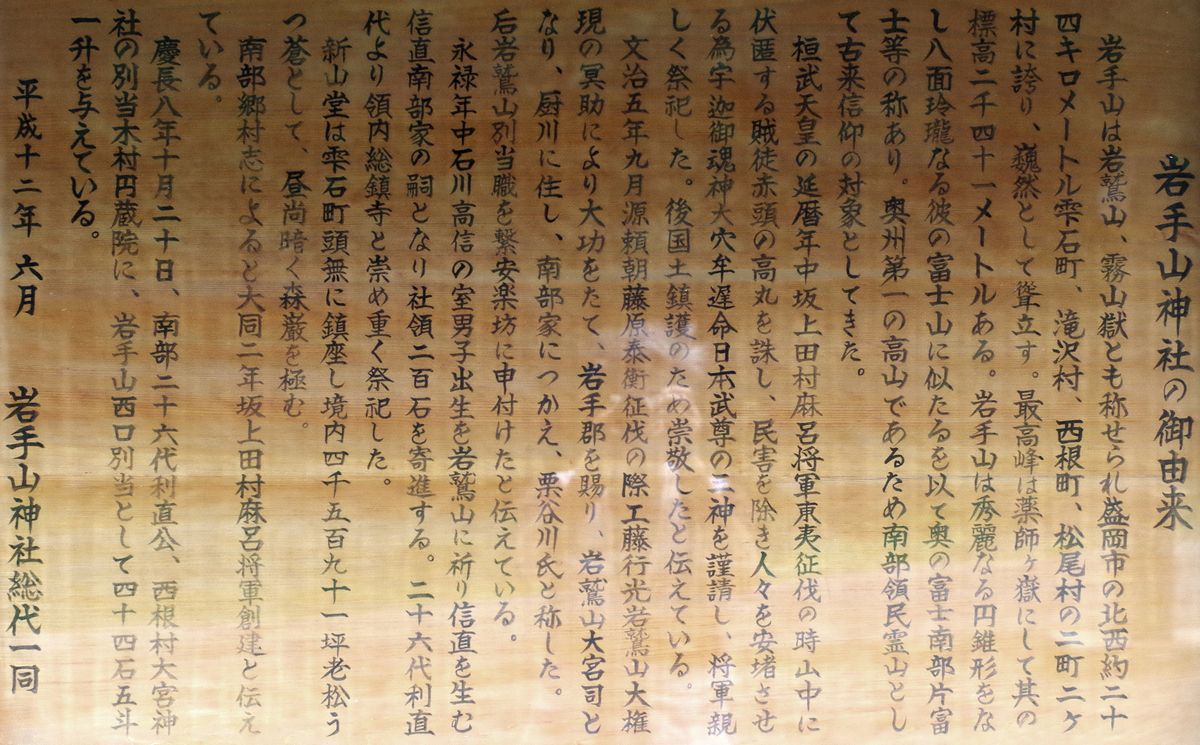 岩手山神社の御由来
岩手山は岩鷲山、霧山嶽とも称せられ盛岡市の北西約二十
四キロメートル雫石町、滝沢村、西根町、松尾村の二町二ヶ
村に誇り、巍然として聳立す。最高峰は薬師ヶ嶽にして其の
標高二千四十一メートルある。岩手山は秀麗なる円錐形をな
し八面玲瓏なる彼の富士山に似たるを以て奥の富士南部片富
士等の称あり。奥州第一の高山であるため南部領民霊山とし
て古来信仰の対象としてきた。
桓武天皇の延暦年中坂上田村麻呂将軍東夷征伐の時山中に
伏匿する賊徒赤頭の高丸を誅し、民害を除き人々を安堵させ
る為宇迦御魂神大穴牟遅命日本武尊の三神を謹請し、将軍親
しく祭祀した。後国土鎮護のため崇敬したと伝えている。
文治五年九月源頼朝藤原泰衡征伐の際工藤行光岩鷲山大権
現の冥助により大功をたて、岩手郡を賜り、岩鷲山大宮司と
なり、厨川に住し、南部家につかえ、栗谷川氏と称した。
后岩鷲山別当職を繋安楽坊に申付けたと伝えている。
永禄年中石川高信の室男子出生を岩鷲山に祈り信直を生む
信直南部家の嗣となり社領二百石を寄進する。二十六代利直
代より領内総鎮寺と崇め重く祭祀した。
新山堂は雫石町頭無に鎮座し境内四千五百九十一坪老松う
つ蒼として、昼尚暗く森厳を極む。
南部郷村志によると大同二年坂上田村麻呂将軍創建と伝え
ている。
慶長八年十月二十日、南部二十六代利直公、西根村大宮神
社の別当木村円蔵院に、岩手山西口別当として四十四石五斗
一升を与えている。
平成十二年 六月 岩手山神社総代一同